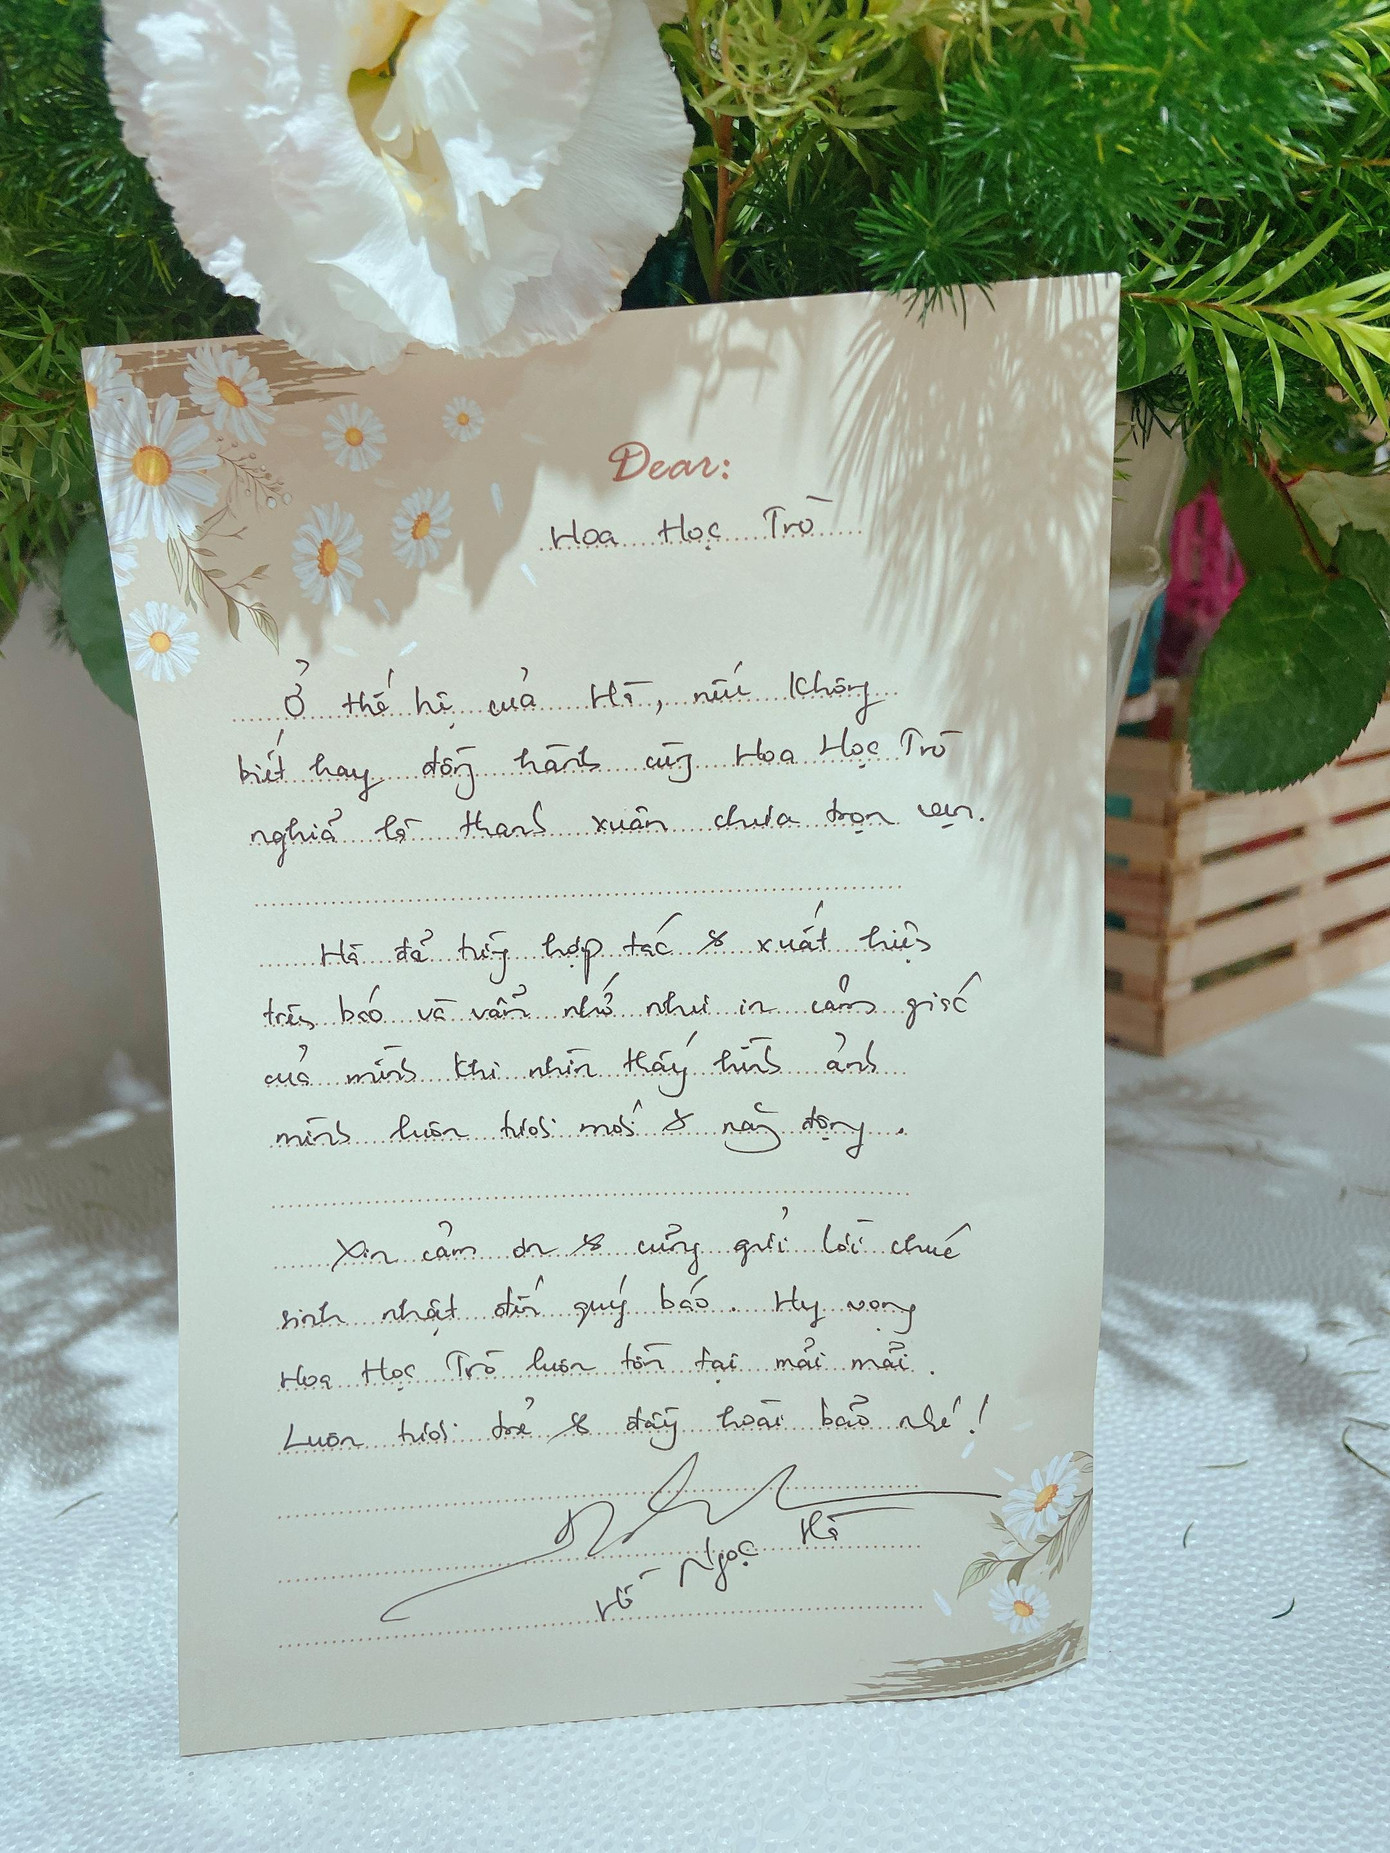 Dear:
Hoa Học Trò
Ở thế hệ của Hà, nếu không
biết hay đồng hành cùng Hoa Học Trò
nghĩa là thanh xuân chưa trọn vẹn.
Hà đã từng hợp tác & xuất hiện
trên báo và vẫn nhớ như in cảm giác
của mình khi nhìn thấy hình ảnh
mình luôn tươi mới & năng động.
Xin cảm ơn & cũng gửi lời chúc
sinh nhật đến quý báo. Hy vọng
Hoa Học Trò luôn tồn tại mãi mãi.
Luôn tươi trẻ & đầy hoài bão nhé!
Hồ Ngọc Hà